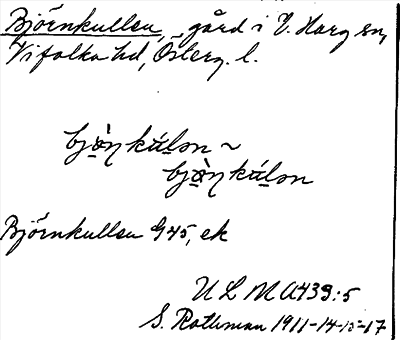 Björnkullen, gård i V. Harg sn,
Vifolka hd, Österg. l.
bjɷ̀ŋkúlən ~
bjɷ̀ŋkúlən
Björnkullen G45, ek
ULMA439:5
S. Rothman 1911-14-15-17